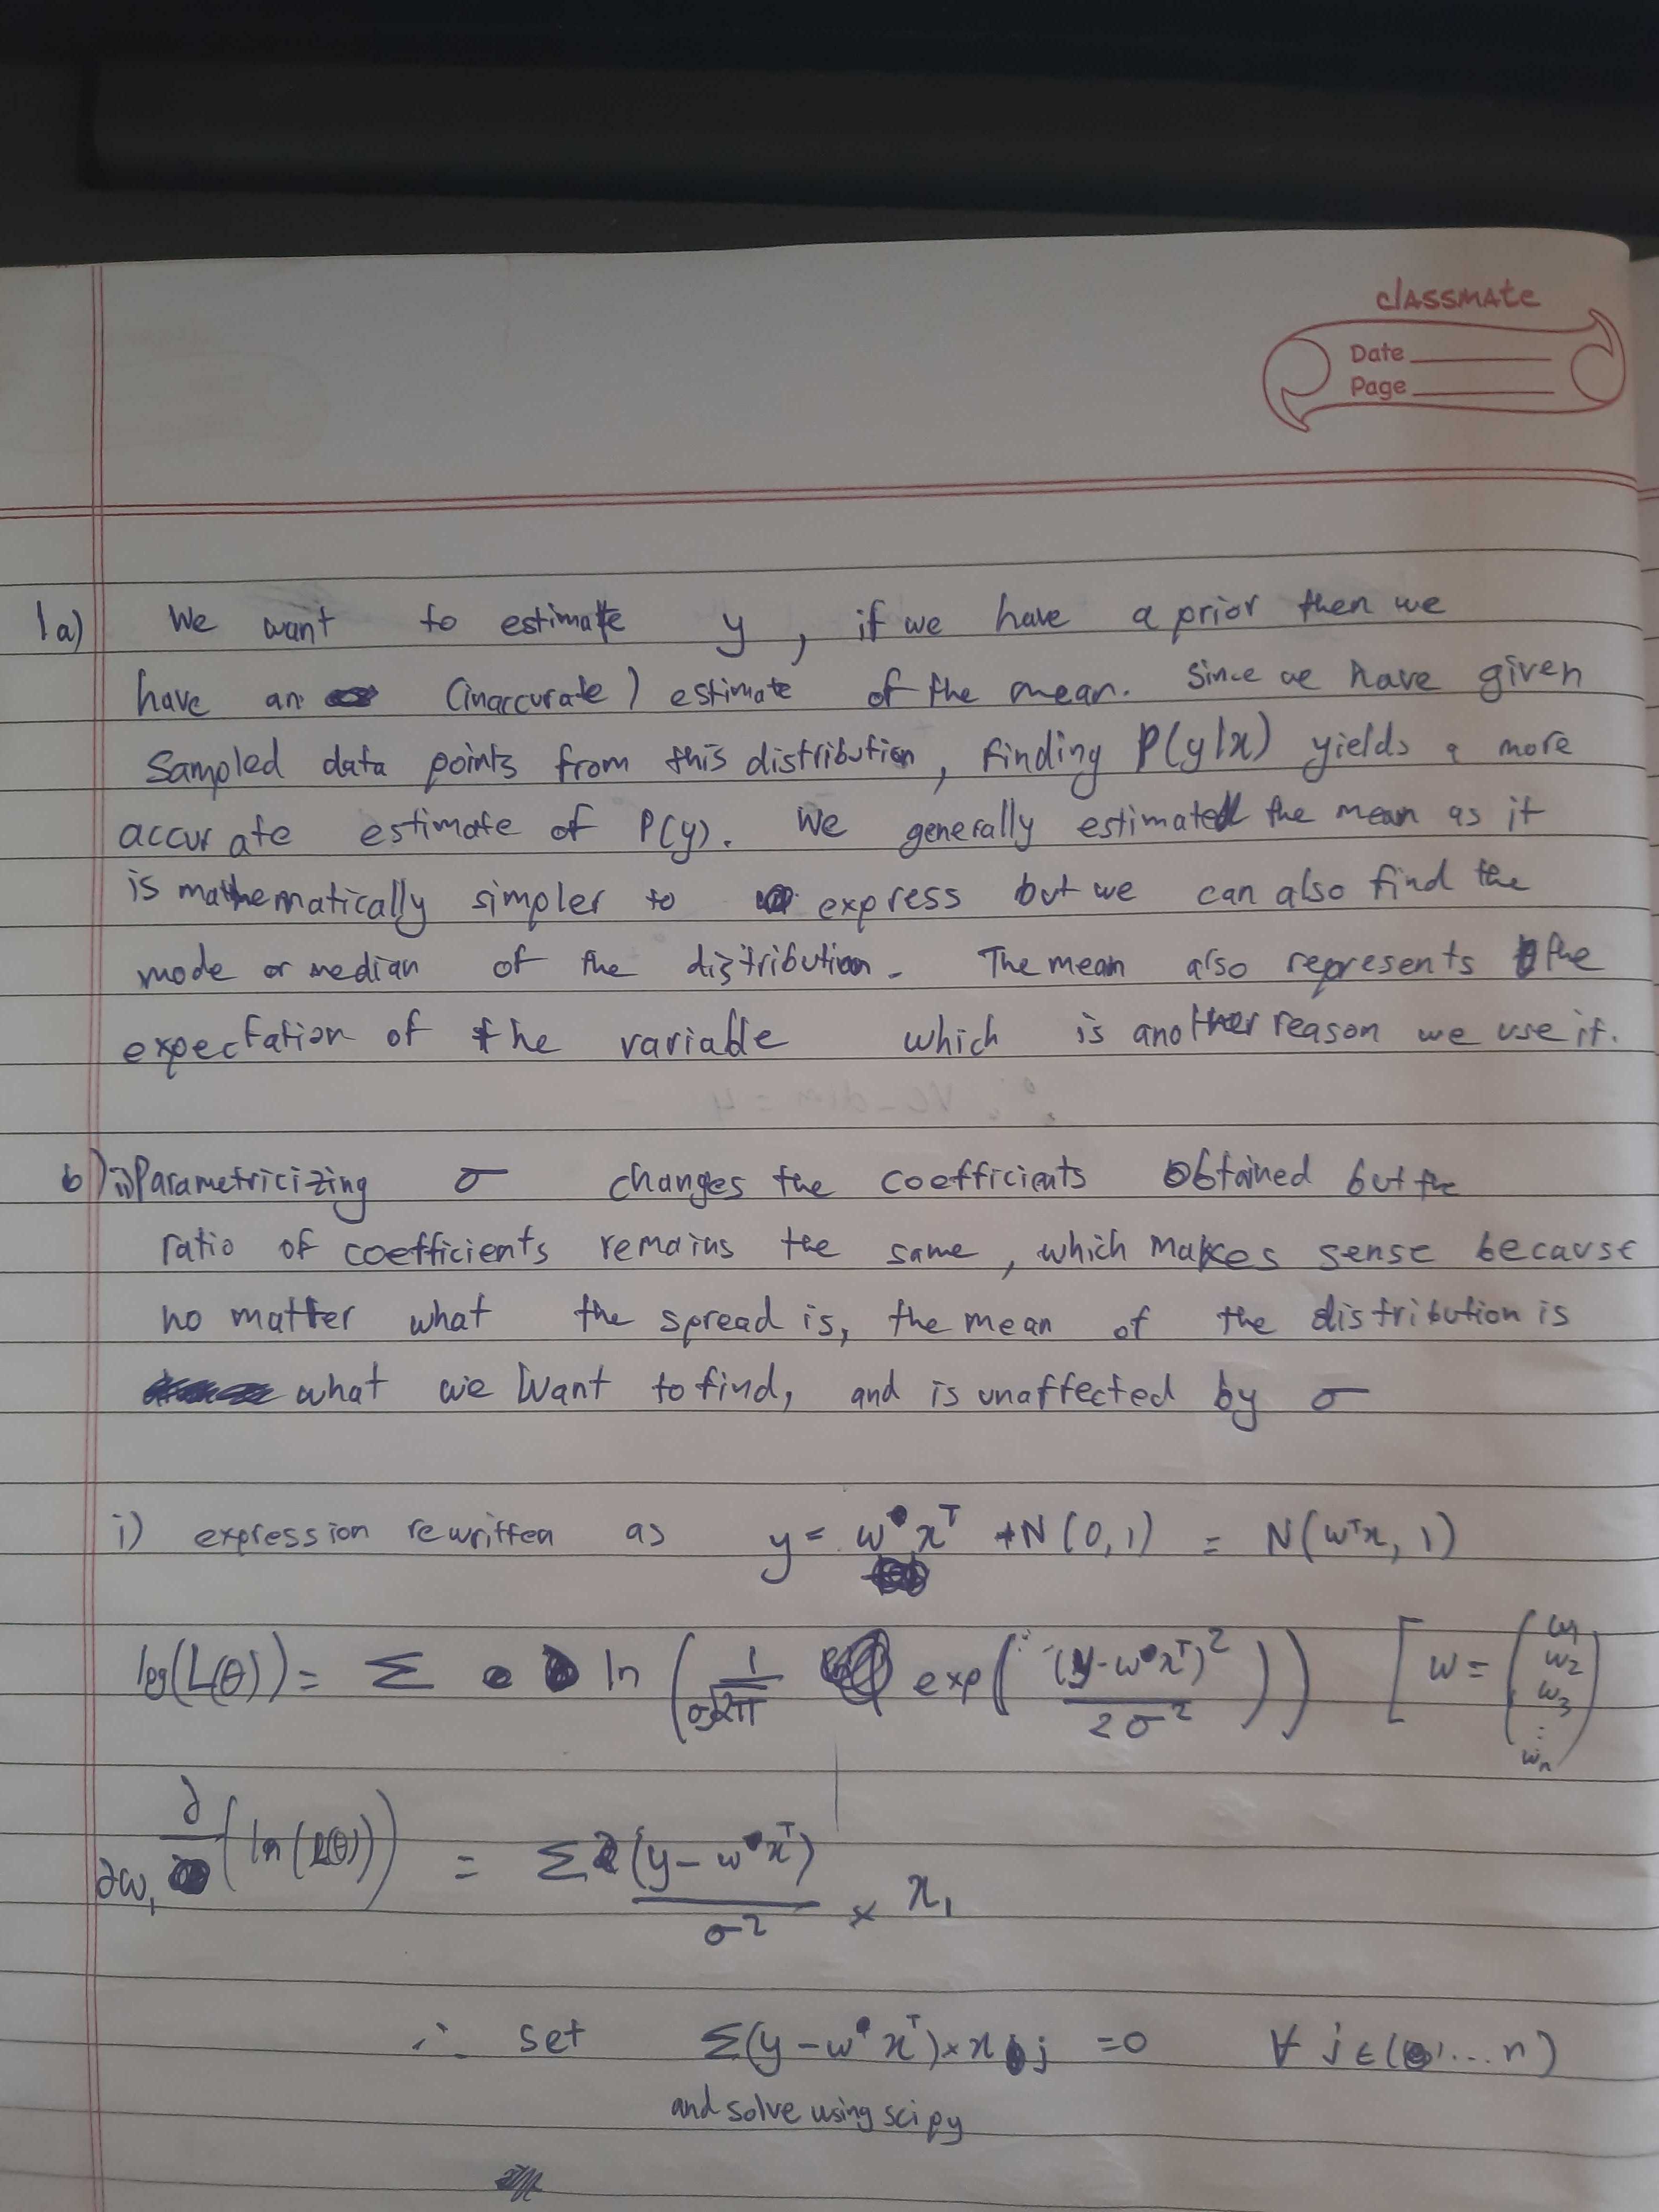 classmate
Date
Page
1a) We want to estimate y, if we have a prior then we
have an (inaccurate) estimate of the mean. Since we have given
Sampled data points from this distribution, finding P(y|x) yields a more
accurate estimate of P(y). We generally estimated the mean as it
is mathematically simpler to express but we can also find the
mode or median of the distribution. The mean also represents the
expectation of the variable which is another reason we use it.
b) ii) Parametricizing σ changes the coefficients obtained but the
ratio of coefficients remains the same, which makes sense because
no matter what the spread is, the mean of the distribution is
what we want to find, and is unaffected by σ
i) expression rewritten as y = w xᵀ + N(0,1) = N(wᵀx, 1)
log(L(θ)) = Σ ln(1/(σ√2π) exp((y-w xᵀ)²/2σ²)) [w = (w₁ w₂ w₃ ⋮ wₙ)
∂/∂w₁ (ln(L(θ))) = Σ (y - w xᵀ)/σ² × x₁
∴ set Σ(y - w xᵀ) × x j = 0 ∀ j ∈ (1...n)
and solve using scipy